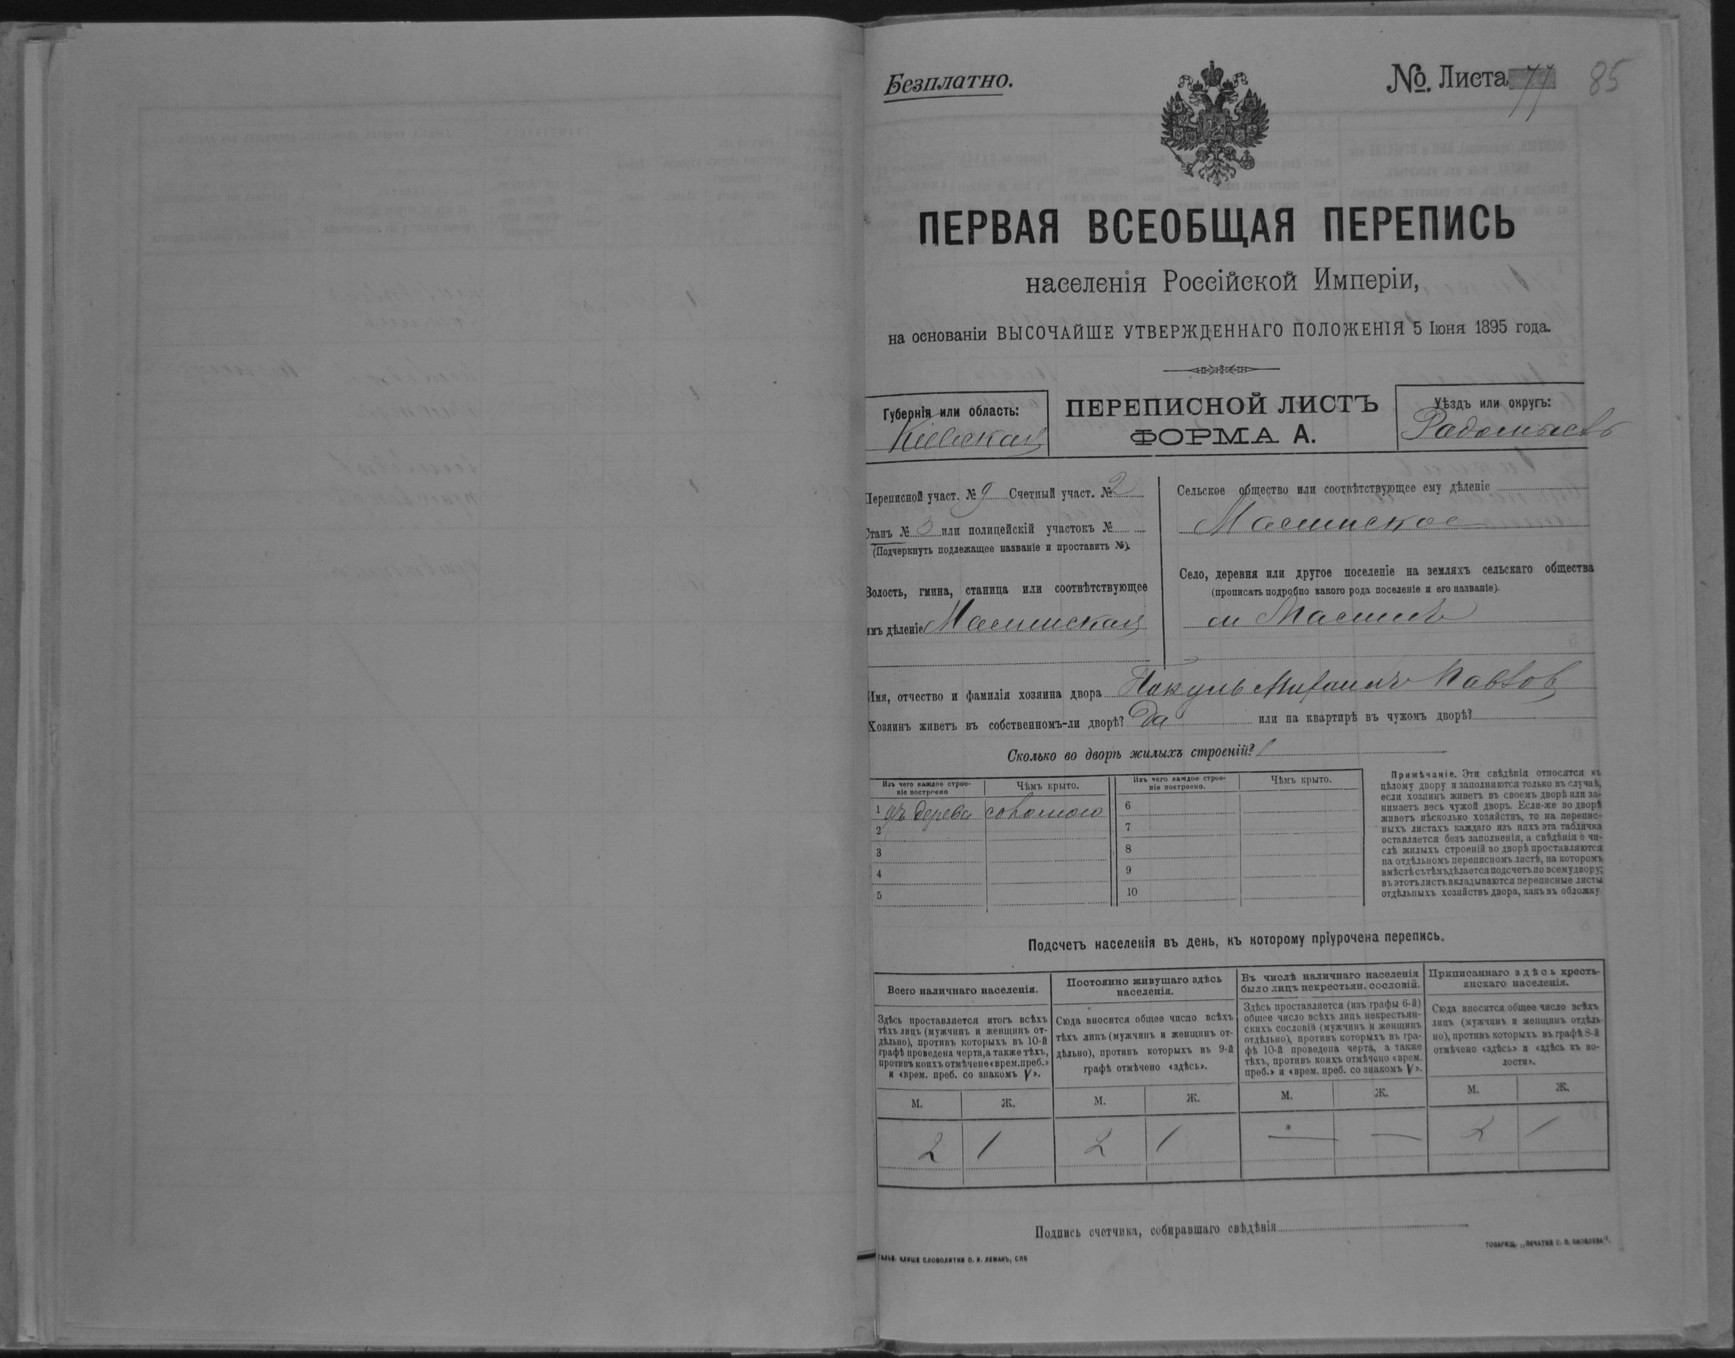 Безплатно.
№. Листа 77 85
ПЕРВАЯ ВСЕОБЩАЯ ПЕРЕПИСЬ
населенія Россійской Имперіи,
на основаніи ВЫСОЧАЙШЕ УТВЕРЖДЕННАГО ПОЛОЖЕНІЯ 5 Іюня 1895 года.
Губернія или область:
Кіевская
ПЕРЕПИСНОЙ ЛИСТЪ
ФОРМА А.
Уѣздъ или округъ:
Радомысль
Переписной участ. № 9 Счетный участ. № 2
Станъ № 3 или полицейскій участокъ №
(Подчеркнуть подлежащее названіе и проставить №).
Волость, гмина, станица или соотвѣтствующее
имъ дѣленіе Малинская
Сельское общество или соотвѣтствующее ему дѣленіе
Малинское
Село, деревня или другое поселеніе на земляхъ сельскаго общества
(прописать подробно какого рода поселеніе и его названіе).
м Малинъ
Имя, отчество и фамилія хозяина двора
Хозяинъ живетъ въ собственномъ-ли дворѣ? Да или на квартирѣ въ чужомъ дворѣ?
Сколько во дворѣ жилыхъ строеній? 1
Изъ чего каждое строе-
ніе построено
Чѣмъ крыто.
Изъ чего каждое строе-
ніе построено.
Чѣмъ крыто.
1 изъ дерева соломою
2
3
4
5
6
7
8
9
10
Примѣчаніе. Эти свѣдѣнія относятся къ
цѣлому двору и заполняются только въ случаѣ,
если хозяинъ живетъ въ своемъ дворѣ или за-
нимаетъ весь чужой дворъ. Если-же во дворѣ
живетъ нѣсколько хозяйствъ, то на перепис-
ныхъ листахъ каждаго изъ нихъ эта табличка
оставляется безъ заполненія, а свѣдѣнія о чи-
слѣ жилыхъ строеній во дворѣ проставляются
на отдѣльномъ переписномъ листѣ, на которомъ
вмѣстѣ съ тѣмъ дѣлается подсчетъ по всему двору;
въ этотъ листъ вкладываются переписные листы
отдѣльныхъ хозяйствъ двора, какъ въ обложку.
Подсчетъ населенія въ день, къ которому пріурочена перепись.
Всего наличнаго населенія.
Здѣсь проставляется итогъ всѣхъ
тѣхъ лицъ (мужчинъ и женщинъ от-
дѣльно), противъ которыхъ въ 10-й
графѣ проведена черта, а также тѣхъ,
противъ коихъ отмѣчено «врем. преб.»
и «врем. преб. со знакомъ V».
Постоянно живущаго здѣсь
населенія.
Сюда вносится общее число всѣхъ
тѣхъ лицъ (мужчинъ и женщинъ от-
дѣльно), противъ которыхъ въ 9-й
графѣ отмѣчено «здѣсь».
Въ числѣ наличнаго населенія
было лицъ некрестьян. сословій.
Здѣсь проставляется (изъ графы 6-й)
общее число всѣхъ лицъ некрестьян-
скихъ сословій (мужчинъ и женщинъ
отдѣльно), противъ которыхъ въ гра-
фѣ 10-й проведена черта, а также
тѣхъ, противъ коихъ отмѣчено «врем.
преб.» и «врем. преб. со знакомъ V».
Приписаннаго здѣсь кресть-
янскаго населенія.
Сюда вносится общее число всѣхъ
лицъ (мужчинъ и женщинъ отдѣль-
но), противъ которыхъ въ графѣ 8-й
отмѣчено «здѣсь» и «здѣсь въ во-
лости».
М. Ж. М. Ж. М. Ж. М. Ж.
2 1 2 1 — — 2 1
Подпись счетчика, собиравшаго свѣдѣнія
ГАЛЬВ. КЛИШЕ СЛОВОЛИТНИ О. И. ЛЕМАНЪ, СПБ
ТОВАРИЩ. „ПЕЧАТНЯ С. П. ЯКОВЛЕВА“.